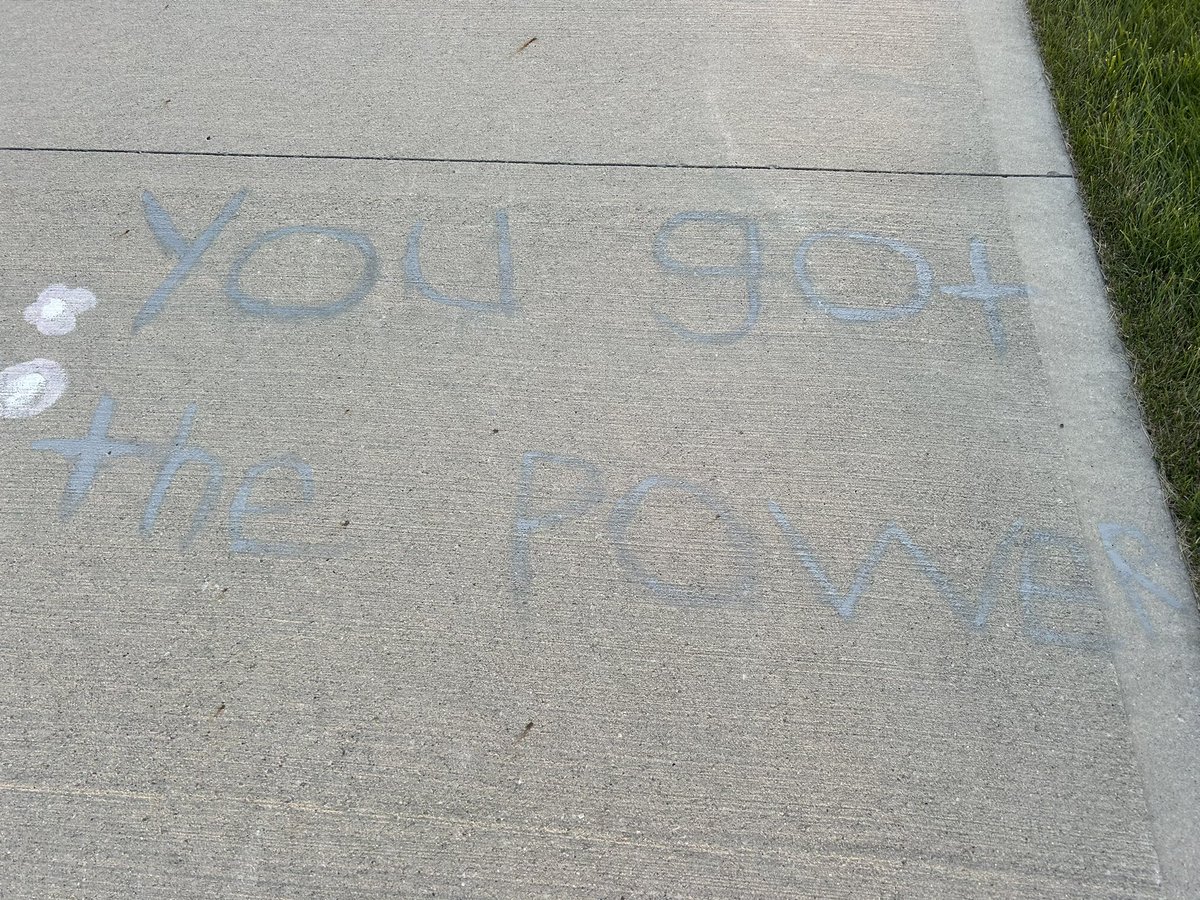 You got
the POWER